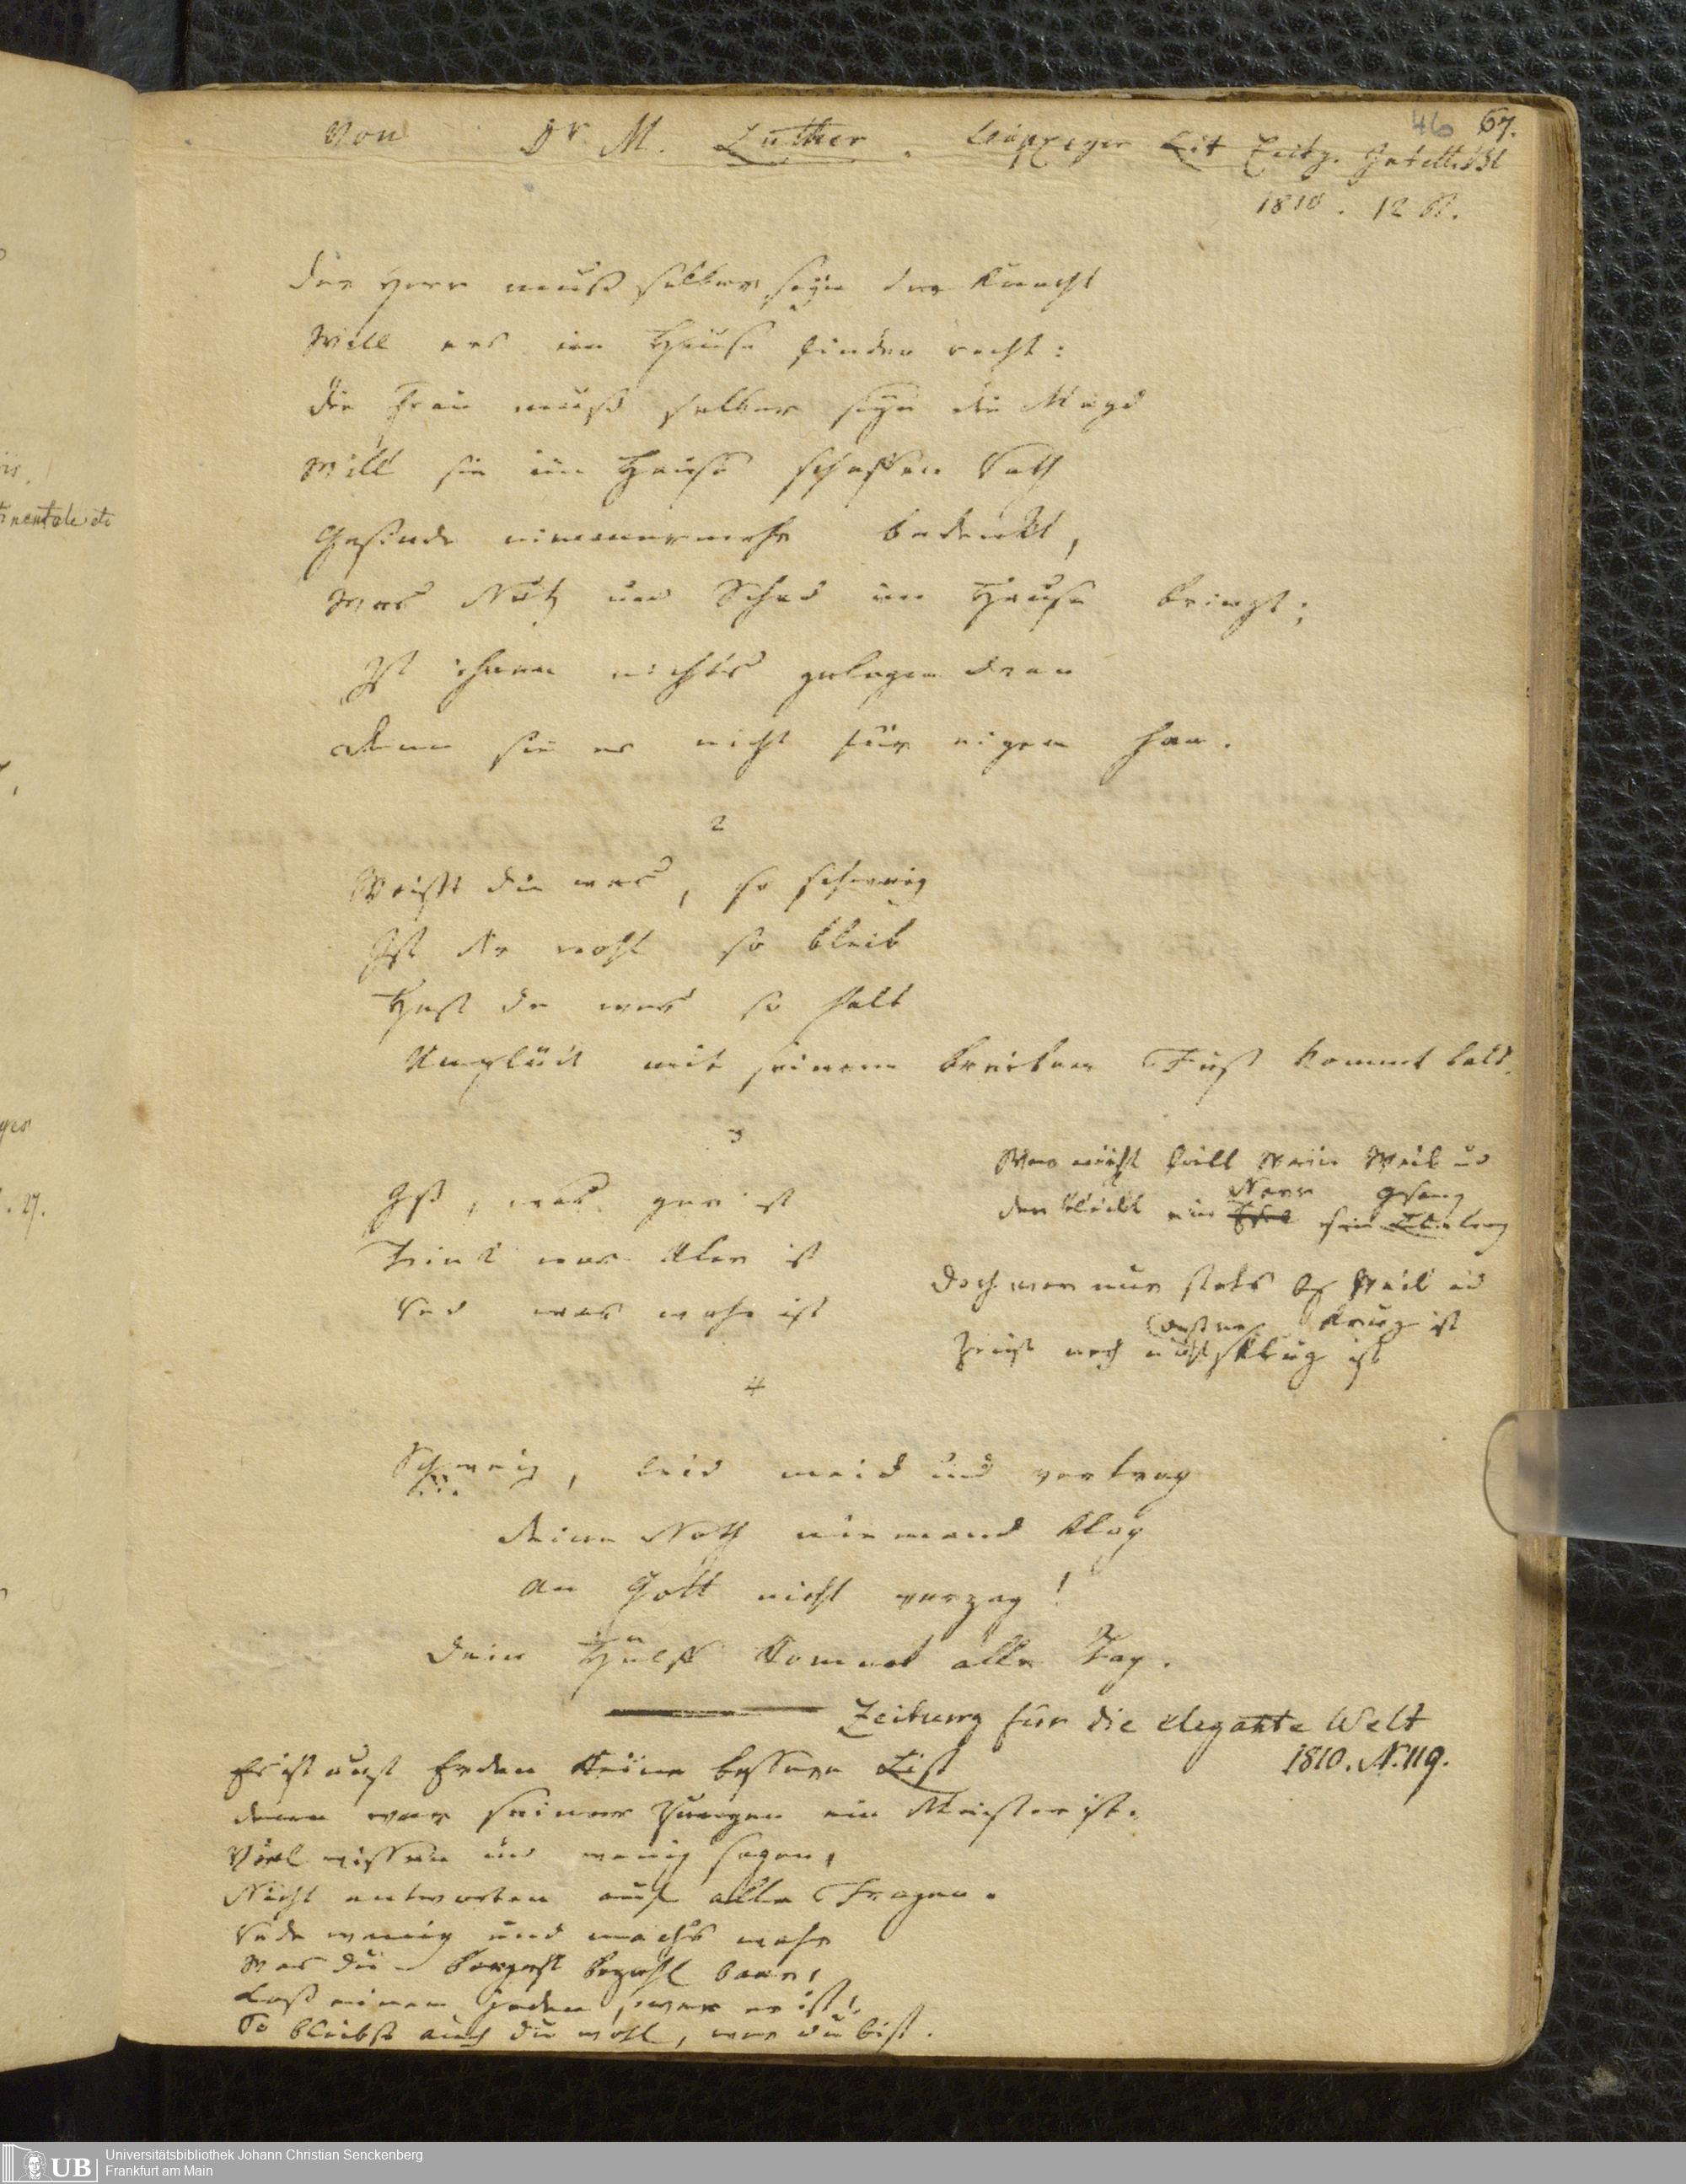 46 67.
Von Dr. M. Luther. Leipziger Lit Zeitg. Intell.Bl
1810. 12 St.
Der Herr muß selber seyn der Knecht
Will ers im Hause finden recht:
Die Frau muß selber seyn die Magd
Will sie im Hause schaffen Rath
Gesinde nimmermehr bedenkt,
Was Nutz und Schad im Hause bringt;
Ist ihnen nichts gelegen dran
Denn sie es nicht für eigen han.
2
Weißt du was, so schweig
Ist dir wohl so bleib
Hast du was so halt
Unglück mit seinem breiten Fuß kommt bald.
3
Iß, was gar ist
Trink was klar ist
Red was wahr ist
Wer nicht liebt Wein Weib und
Narr Gesang
der bleibt ein Esel sein Lebelang
Doch wer nur stets bey Weib und
Krug ist
nicht klug ist
4
Schweig, leid meid und vertrag
Deine Noth niemand klag
An Gott nicht verzag!
Dein Hülff kommet alle Tag.
Zeitung für die elegante Welt
1810. N. 119.
Es ist auf Erden keine bessere List
denn wer seiner Zungen ein Meister ist.
Viel wissen und wenig sagen,
Nicht antworten auf alle Fragen.
Rede wenig und machs wahr
Was du borgest bezahl baar,
Laß einen jeden, wer er ist,
So bleibst auch du wohl, wer du bist.
tinentale etc
ges
UB
Universitätsbibliothek Johann Christian Senckenberg
Frankfurt am Main